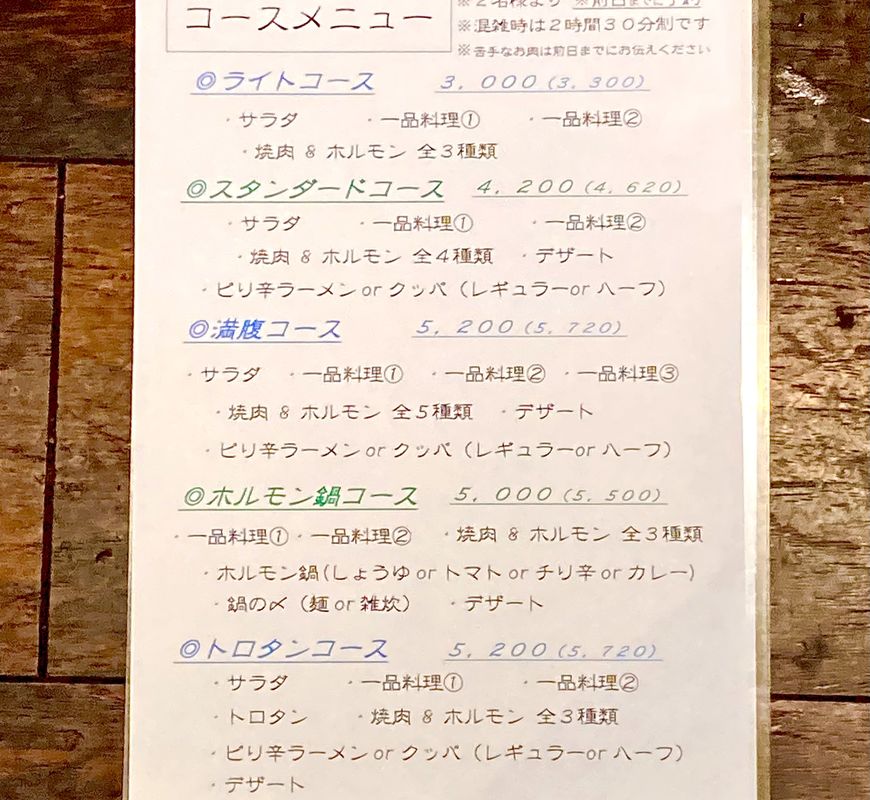 コースメニュー
※２名様より ※前日までに予約
※混雑時は２時間３０分制です
※苦手なお肉は前日までにお伝えください
◎ライトコース　３，０００（３，３００）
・サラダ　・一品料理①　・一品料理②
・焼肉 & ホルモン 全３種類
◎スタンダードコース　４，２００（４，６２０）
・サラダ　・一品料理①　・一品料理②
・焼肉 & ホルモン 全４種類　・デザート
・ピリ辛ラーメン or クッパ（レギュラーor ハーフ）
◎満腹コース　５，２００（５，７２０）
・サラダ　・一品料理①　・一品料理②　・一品料理③
・焼肉 & ホルモン 全５種類　・デザート
・ピリ辛ラーメン or クッパ（レギュラーor ハーフ）
◎ホルモン鍋コース　５，０００（５，５００）
・一品料理①・一品料理②　・焼肉 & ホルモン 全３種類
・ホルモン鍋(しょうゆ or トマト or チリ辛 or カレー)
・鍋の〆（麺 or 雑炊）　・デザート
◎トロタンコース　５，２００（５，７２０）
・サラダ　・一品料理①　・一品料理②
・トロタン　・焼肉 & ホルモン 全３種類
・ピリ辛ラーメン or クッパ（レギュラーor ハーフ）
・デザート